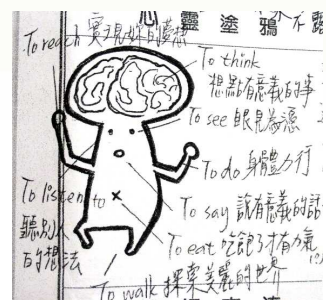 心靈塗鴉
To reach 實現妳的夢想
To think
想點有意義的事
To see 眼見為憑
To do 身體力行
To listen to
聽別人
的想法
To say 說有意義的話
To eat 吃飽了才有力氣
To walk 探索美麗的世界